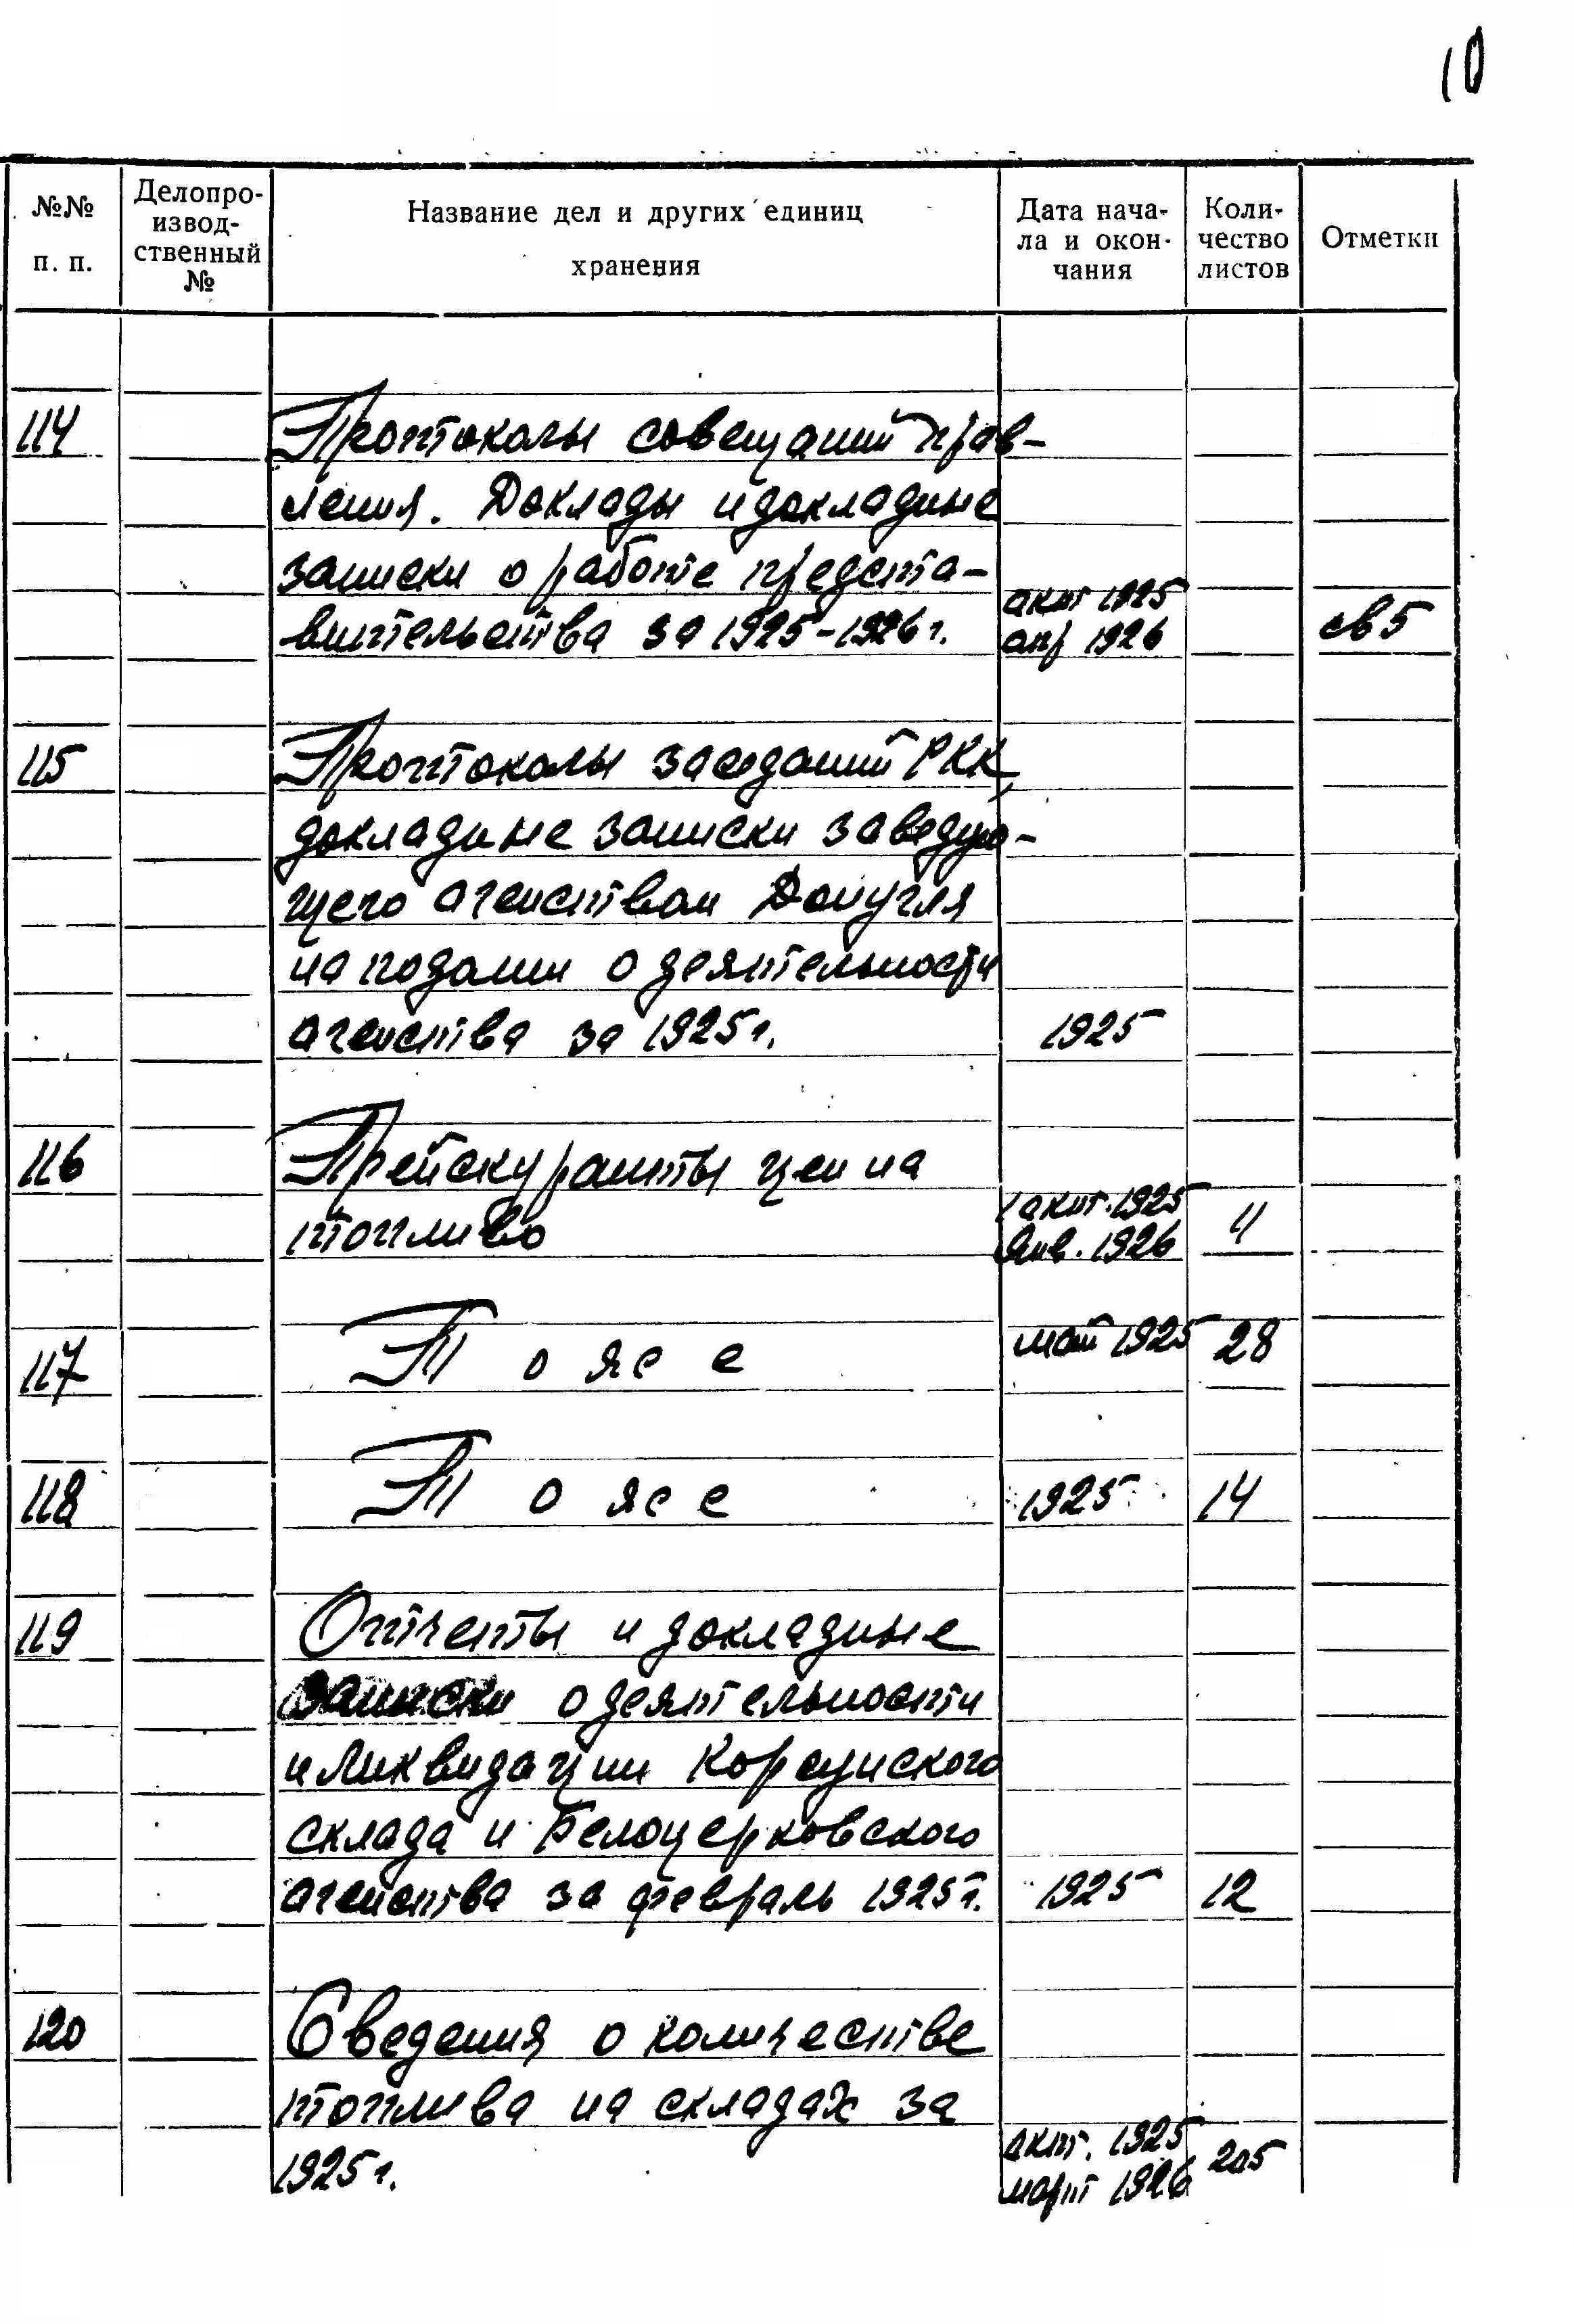 10
№№ п. п.
Делопро-
извод-
ственный
№
Название дел и других единиц
хранения
Дата нача-
ла и окон-
чания
Коли-
чество
листов
Отметки
114 Протоколы совещаний прав-
ления. Доклады и докладные
записки о работе предста- окт 1925
вительства за 1925-1926 г. апр 1926 св 5
115 Протоколы заседаний РКК,
докладные записки заведую-
щего агенством Донугля
на подании о деятельности
агенства за 1925 г. 1925
116 Прейскуранты цен на
1 окт. 1925
топливо янв. 1926 4
117 То же май 1925 28
118 То же 1925 14
119 Отчеты и докладные
записки о деятельности
и ликвидации Корсунского
склада и Белоцерковского
агенства за февраль 1925 г. 1925 12
120 Сведения о количестве
топлива на складах за
окт. 1925
1925 г. март 1926 205